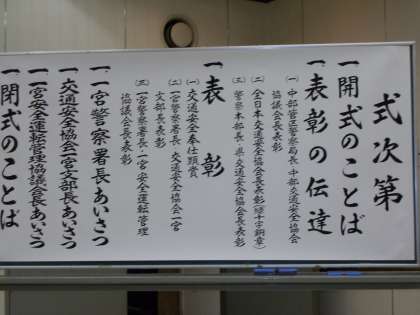 式次第
一開式のことば
一表彰の伝達
(一)中部管区警察局長・中部交通安全協会
協議会長表彰
(二)全日本交通安全協会長表彰(緑十字銅章)
(三)警察本部長・県交通安全協会長表彰
一表彰
(一)交通安全奉仕顕賞
(二)一宮警察署長・交通安全協会一宮
支部長表彰
(三)一宮警察署長・一宮安全運転管理
協議会長表彰
一一宮警察署長あいさつ
一交通安全協会一宮支部長あいさつ
一一宮安全運転管理協議会長あいさつ
一閉式のことば